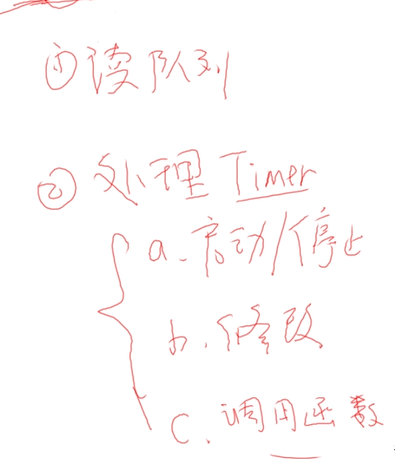 ①读队列
②处理Timer
a.启动/停止
b.修改
c.调用函数